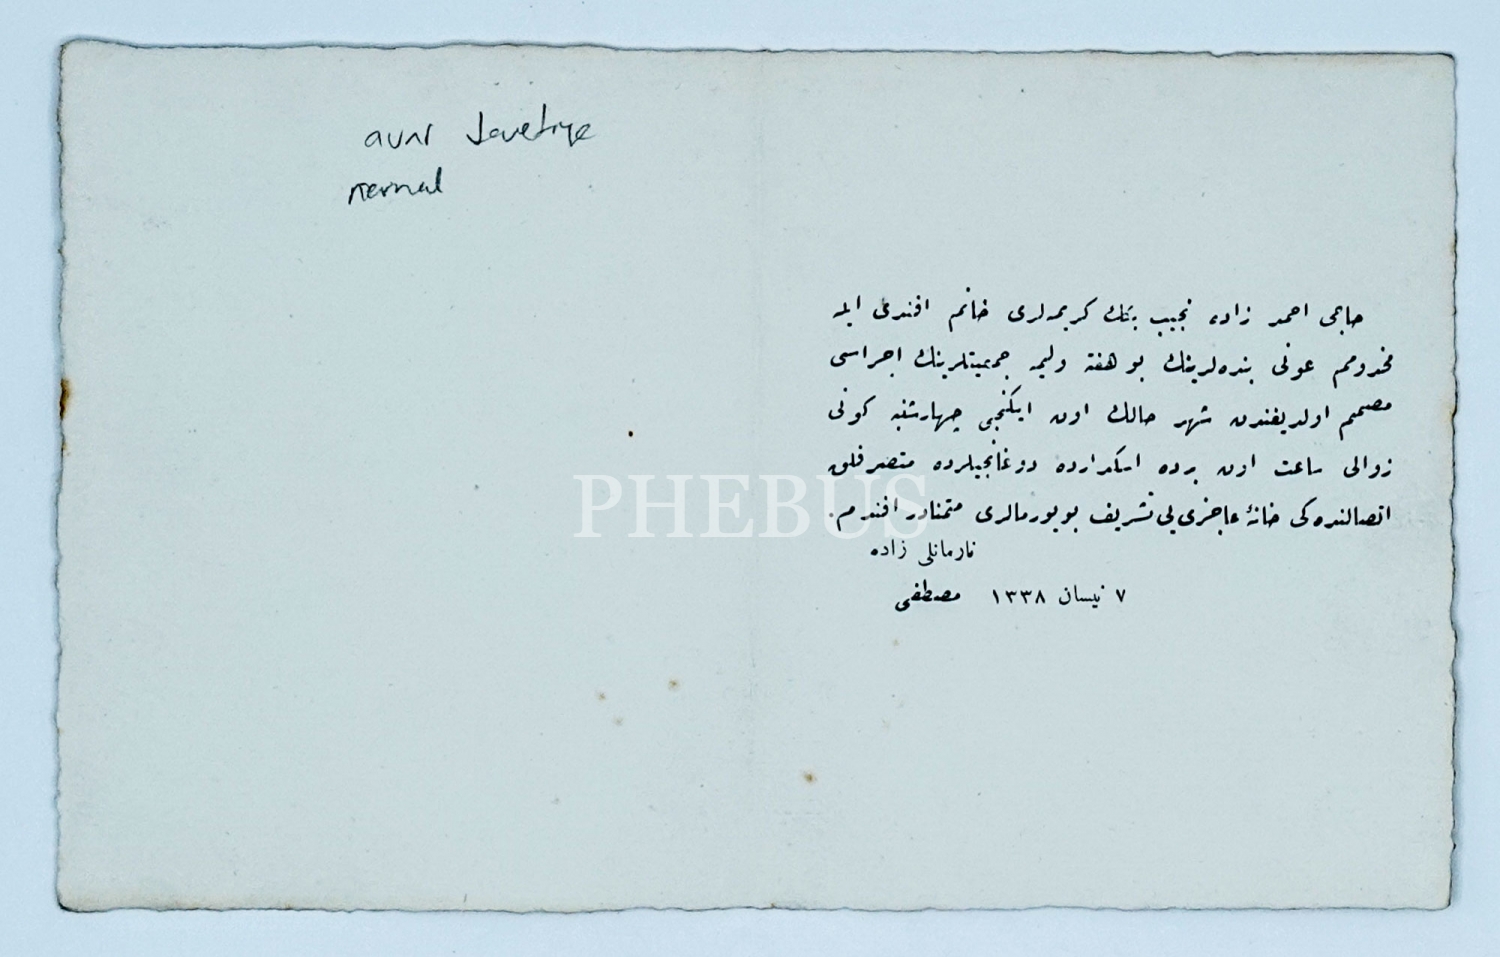 avni davetiye
kemal
حاجی احمد زاده نجیب بكك كریمه لری خانم افندی ایله
مخدومم عونی بنده لرینك بو هفته ولیمه جمعیتلرینك اجراسی
مصمم اولدیغندن شهر حالك اون ایكنجی چهارشنبه كونی
زوالی ساعت اون برده اسكدارده دوغانجیلرده متصرفلق
اتصالنده كی خانۀ عاجزی یی تشریف بویورمالری متمنادر افندم.
نارمانلی زاده
٧ نیسان ١٣٣٨ مصطفی
PHEBUS